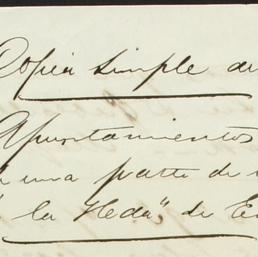 Copia simple de
Apuntamientos
una parte de
" la Heda", de